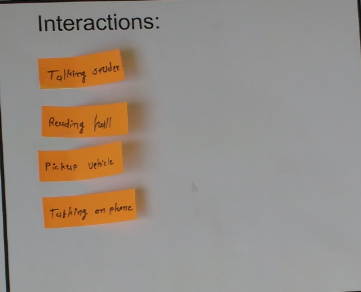 Interactions:
Talking
Reading
Pickup vehicle
Talking on phone